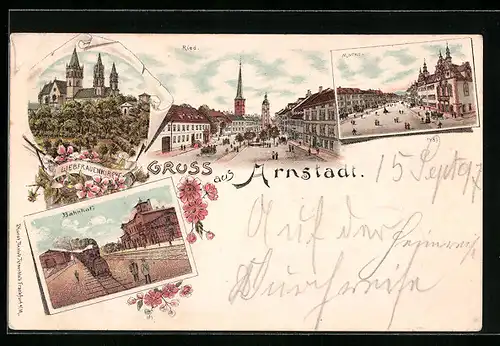 Ried.
Markt.
LIEBFRAUENKIRCHE
GRUSS aus Arnstadt.
15 Sept 97
Bahnhof.
Auf der Heimreise
Durchreise